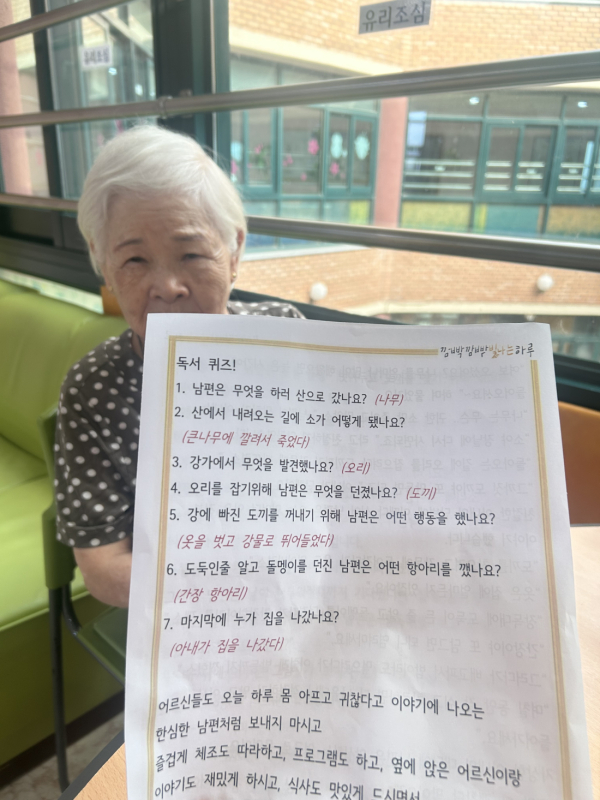 유리조심
유리조심
깜빡깜빡 빛나는 하루
독서 퀴즈!
1. 남편은 무엇을 하러 산으로 갔나요? (나무)
2. 산에서 내려오는 길에 소가 어떻게 됐나요?
(큰나무에 깔려서 죽었다)
3. 강가에서 무엇을 발견했나요? (오리)
4. 오리를 잡기위해 남편은 무엇을 던졌나요? (도끼)
5. 강에 빠진 도끼를 꺼내기 위해 남편은 어떤 행동을 했나요?
(옷을 벗고 강물로 뛰어들었다)
6. 도둑인줄 알고 돌멩이를 던진 남편은 어떤 항아리를 깼나요?
(간장 항아리)
7. 마지막에 누가 집을 나갔나요?
(아내가 집을 나갔다)
어르신들도 오늘 하루 몸 아프고 귀찮다고 이야기에 나오는
한심한 남편처럼 보내지 마시고
즐겁게 체조도 따라하고, 프로그램도 하고, 옆에 앉은 어르신이랑
이야기도 재밌게 하시고, 식사도 맛있게 드시면서